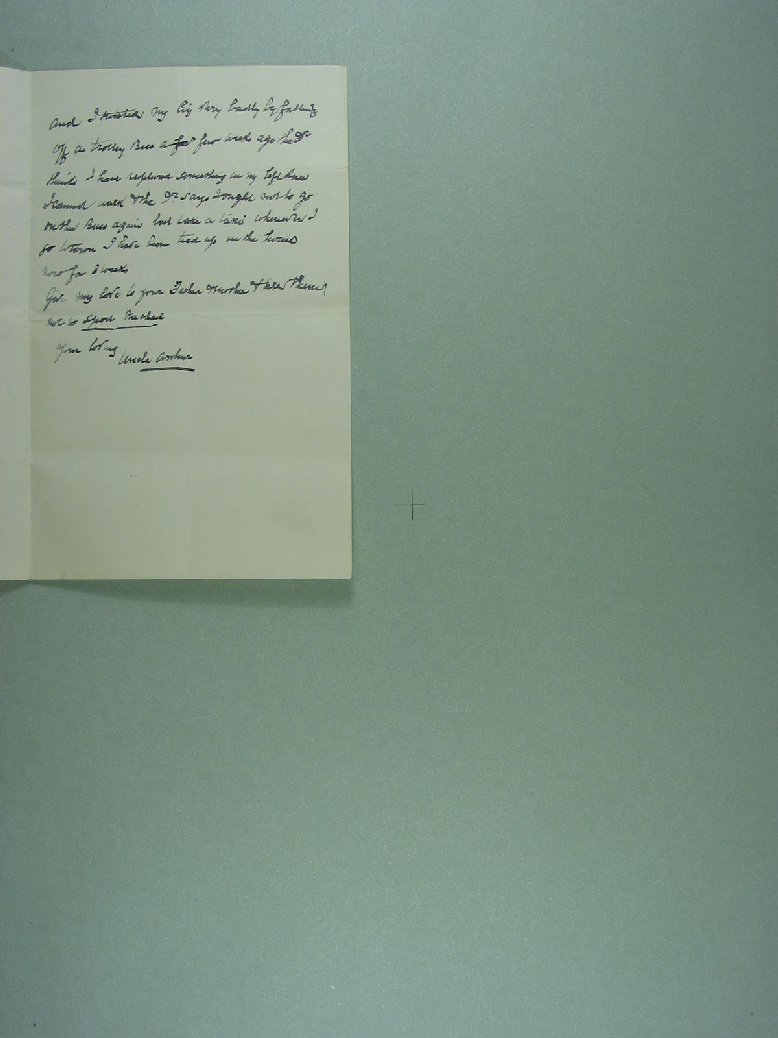 And I twisted my leg very badly by falling
off a trolley Bus a few weeks ago the Dr
thinks I have ruptured something in my left knee
I cannot walk & the Dr says I ought not to go
on the Bus again but take a taxi whenever I
go to town I have been tied up in the house
now for 3 weeks
Give my love to your Father & Mother & tell them
not to spoil
Your loving Uncle Arthur